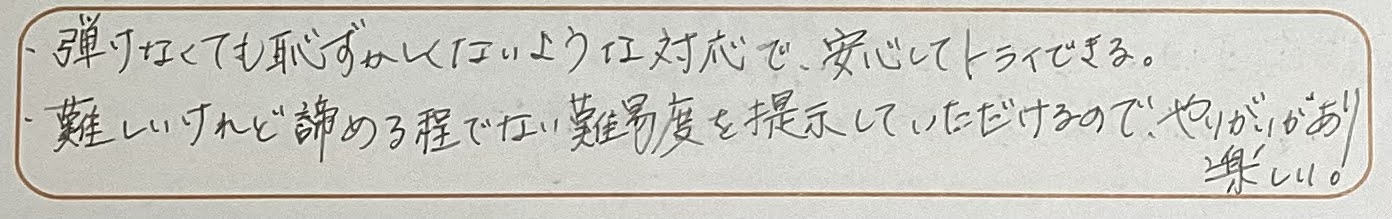 ・弾けなくても恥ずかしくないような対応で、安心してトライできる。
・難しいけれど諦める程でない難易度を提示していただけるので、やりがいがあり
楽しい。